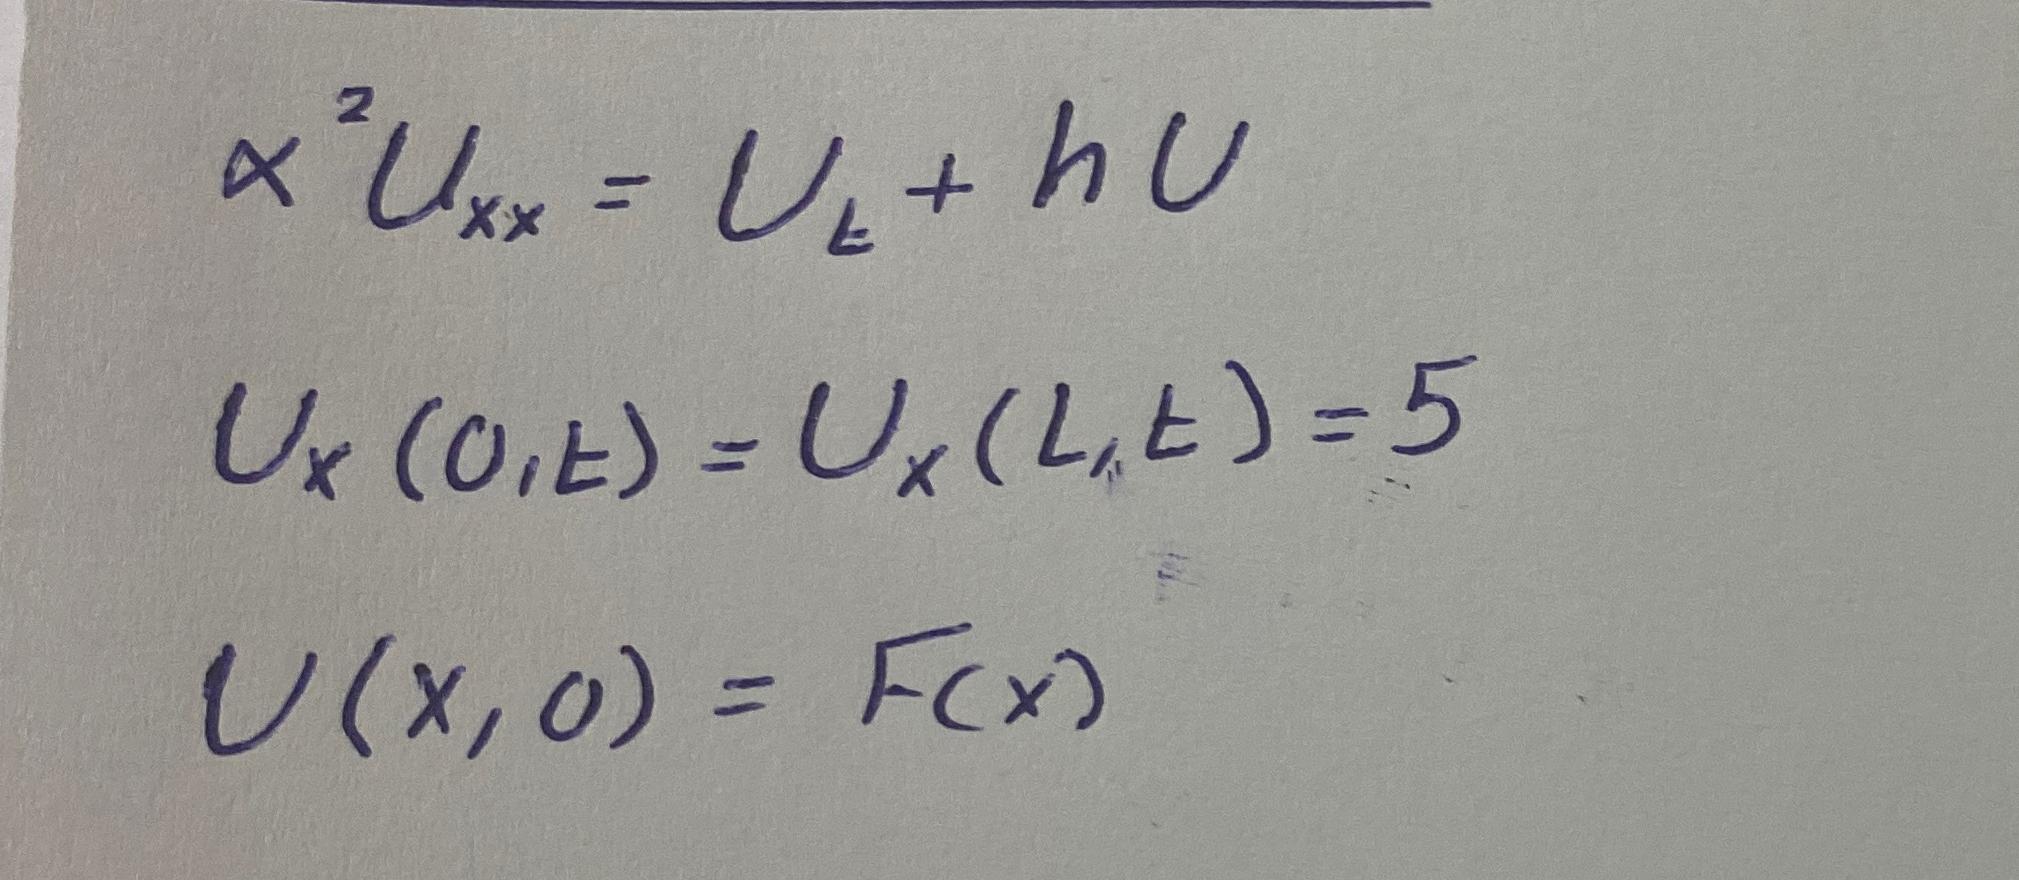 α²Uxx = Ut + hU
Ux(0,t) = Ux(L,t) = 5
U(x,0) = F(x)